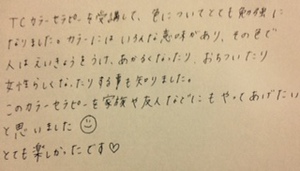 TCカラーセラピーを受講して、色についてとても勉強に
なりました。カラーには いろんな意味があり、その色で
人は えいきょうをうけ、あかるくなったり、おちついたり
女性らしくなったりする事も知りました。
このカラーセラピーを家族や友人などにもやってあげたい
と思いました
とても楽しかったです♡